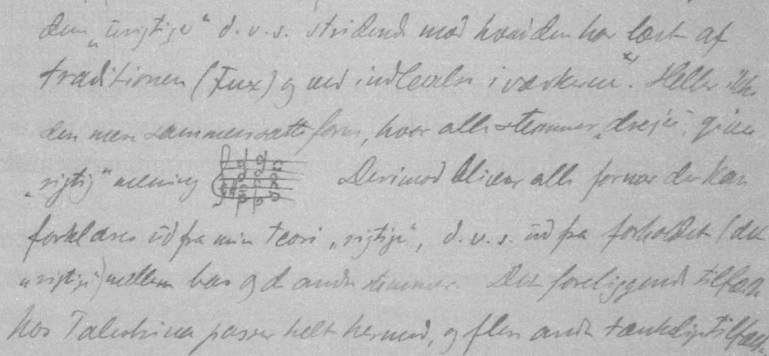 den „urigtige“ d.v.s. stridende mod hvad den har lært af
traditionen (Fux) og ved indlevelse i værkerne“. Heller ikke
den mere sammensatte form, hvor alle stemmer „drejer“, giver
„rigtig“ mening Derimod bliver alle former der kan
forklares ud fra min teori „rigtige“, d.v.s. ud fra forholdet (det
urigtige) mellem bas og de andre stemmer. Det foreliggende tilfælde
hos Palestrina passer helt hermed, og flere andre tænkelige tilfælde